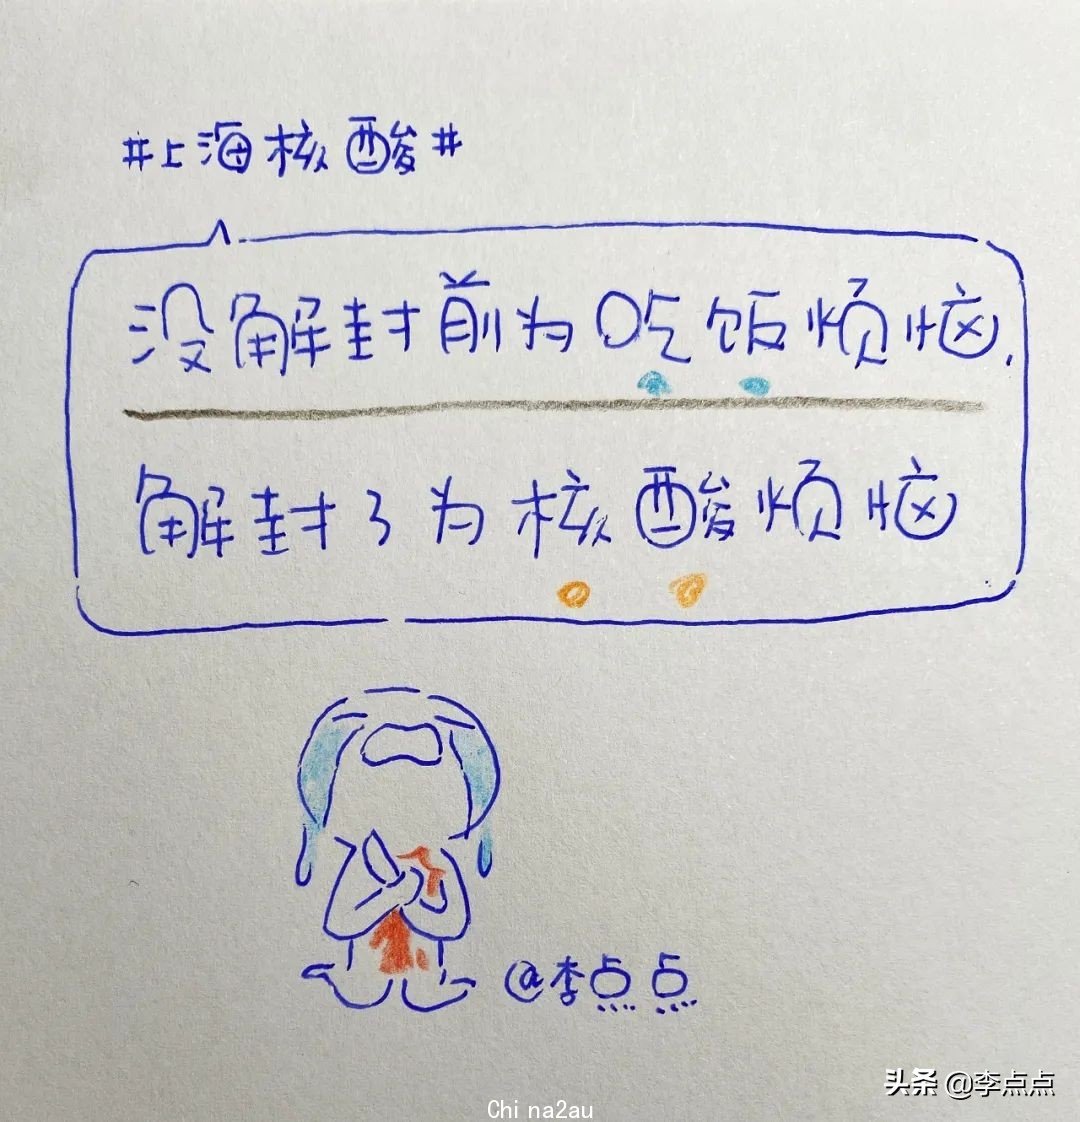 #上海核酸#
没解封前为吃饭烦恼.
解封了为核酸烦恼
@李点点
头条 @李点点
China2au